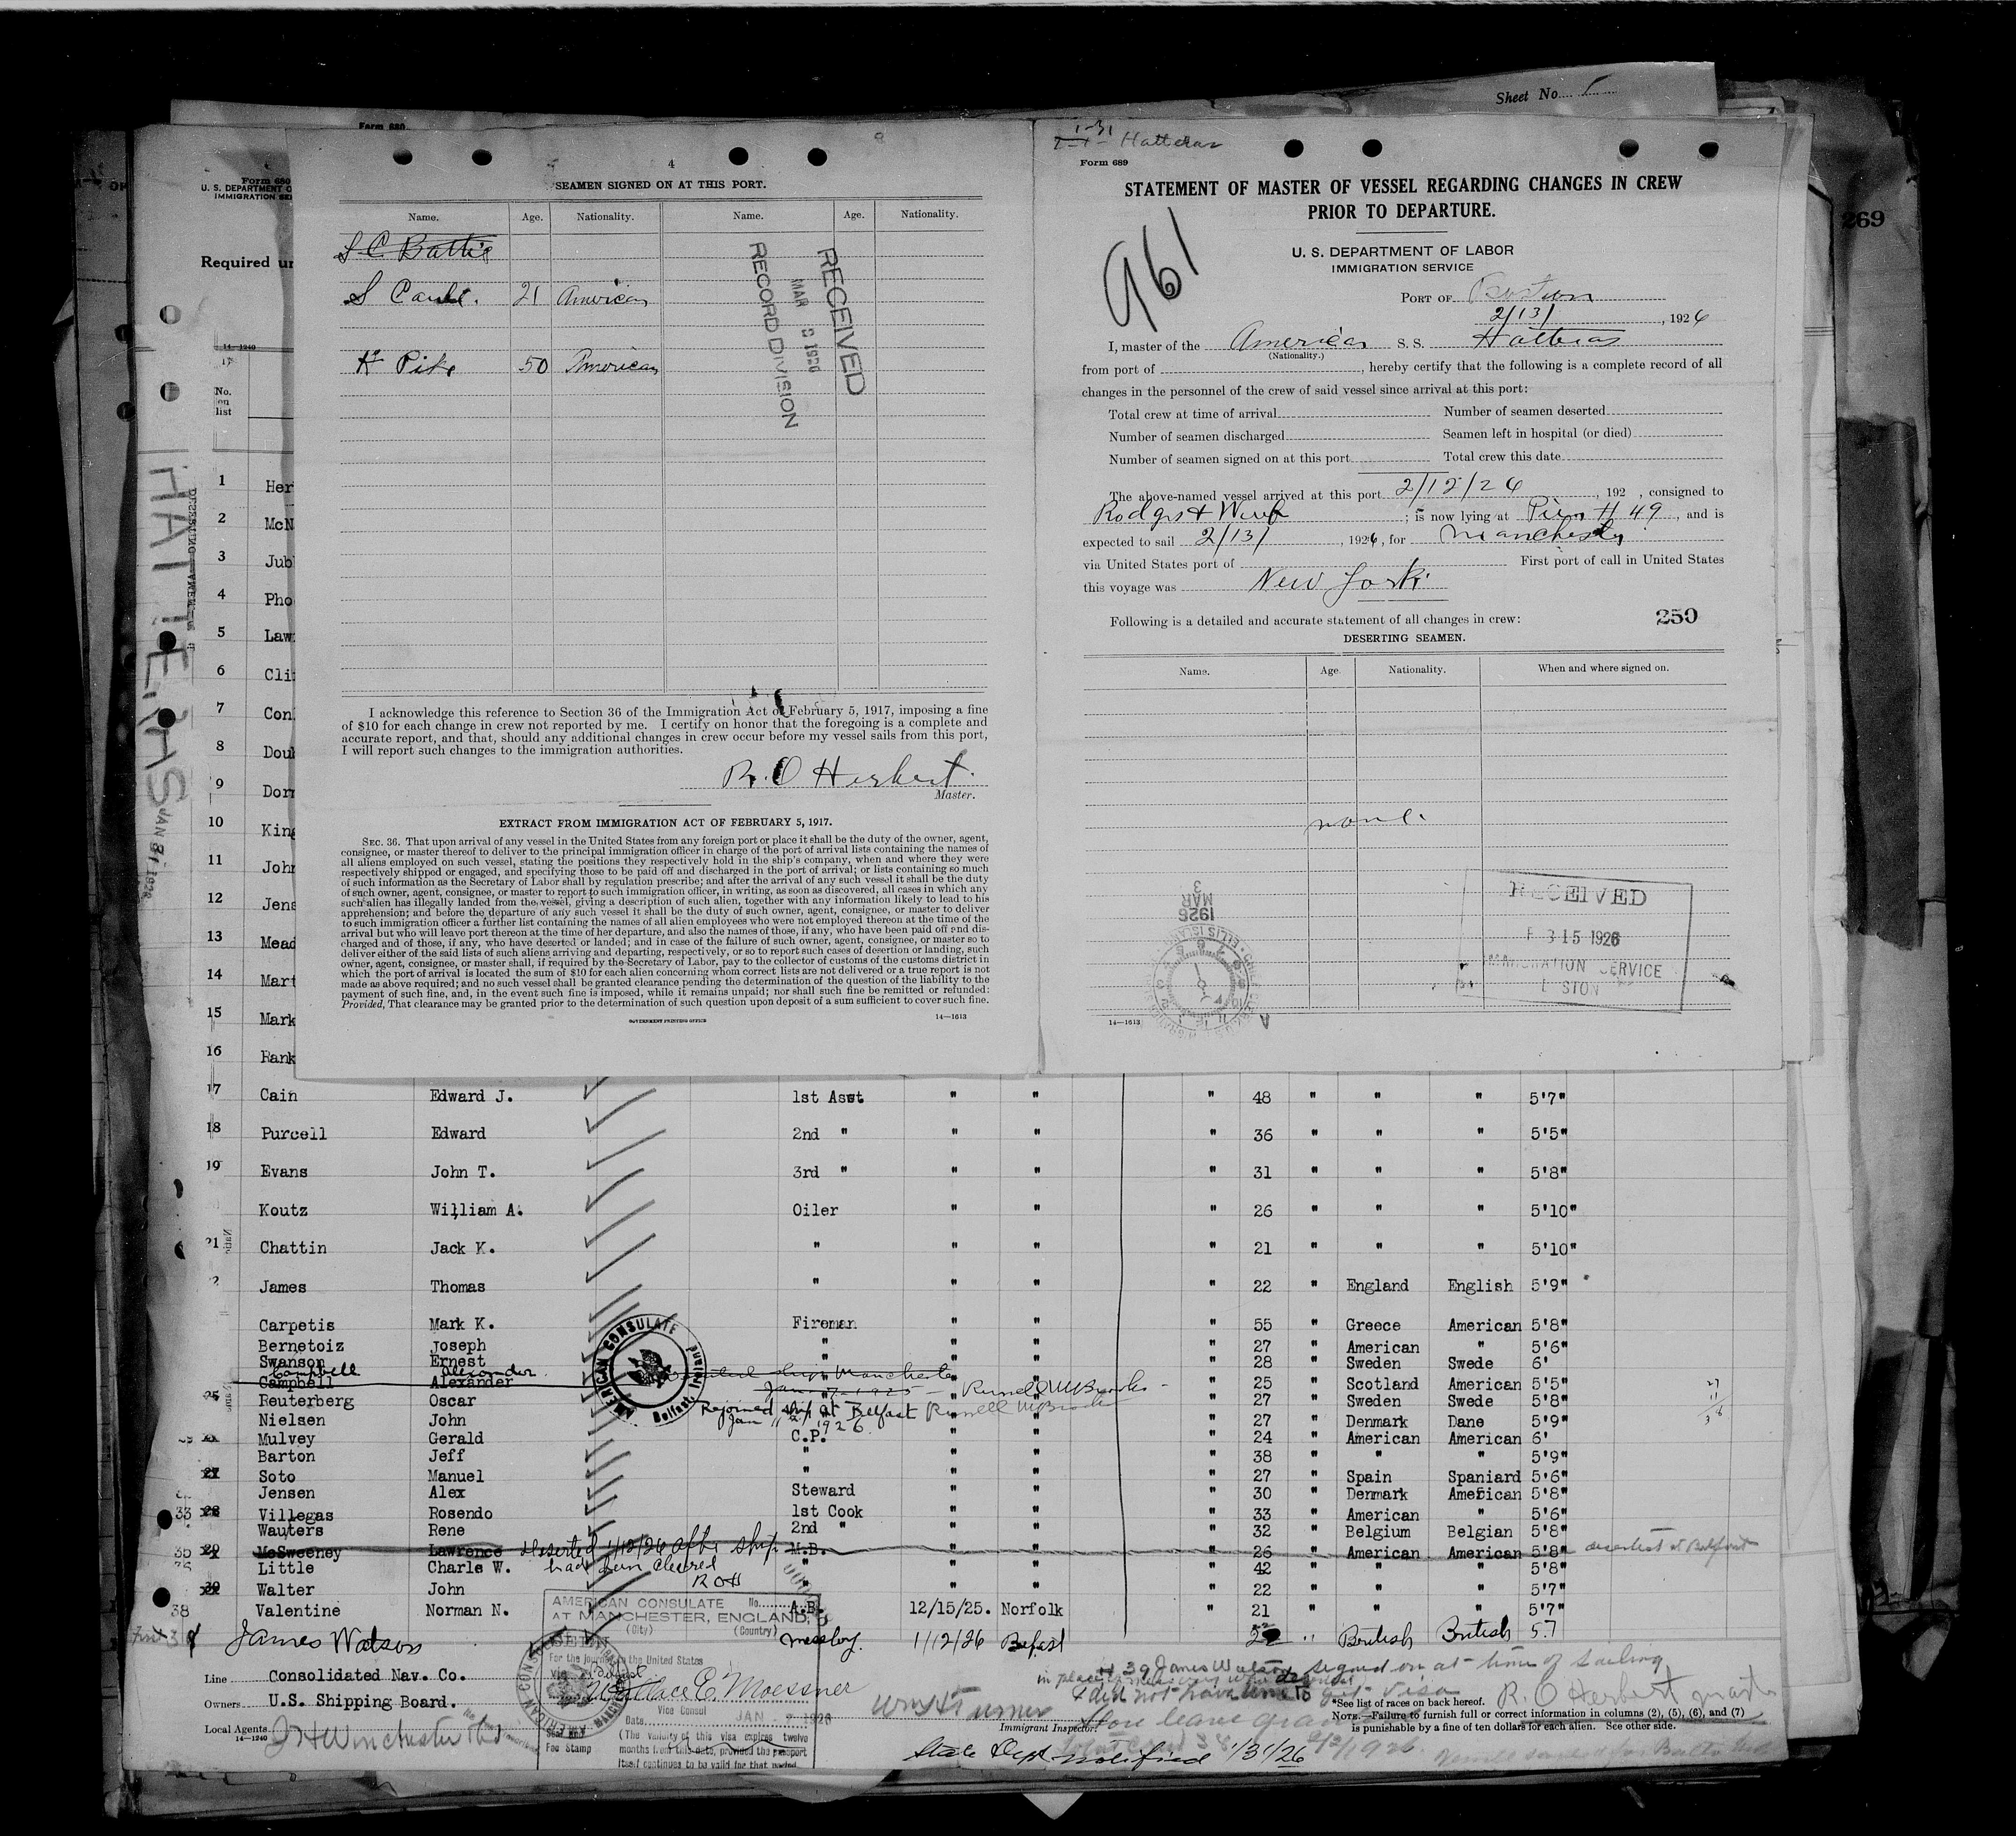 Sheet No.
Form 680
4
SEAMEN SIGNED ON AT THIS PORT.
Name. Age. Nationality. Name. Age. Nationality.
S C Battie
S 21 American
H Pike 50 American
RECEIVED
MAR 3 1926
RECORD DIVISION
I acknowledge this reference to Section 36 of the Immigration Act of February 5, 1917, imposing a fine
of $10 for each change in crew not reported by me. I certify on honor that the foregoing is a complete and
accurate report, and that, should any additional changes in crew occur before my vessel sails from this port,
I will report such changes to the immigration authorities.
R. O Herbert.
Master.
EXTRACT FROM IMMIGRATION ACT OF FEBRUARY 5, 1917.
SEC. 36. That upon arrival of any vessel in the United States from any foreign port or place it shall be the duty of the owner, agent,
consignee, or master thereof to deliver to the principal immigration officer in charge of the port of arrival lists containing the names of
all aliens employed on such vessel, stating the positions they respectively hold in the ship's company, when and where they were
respectively shipped or engaged, and specifying those to be paid off and discharged in the port of arrival; or lists containing so much
of such information as the Secretary of Labor shall by regulation prescribe; and after the arrival of any such vessel it shall be the duty
of such owner, agent, consignee, or master to report to such immigration officer, in writing, as soon as discovered, all cases in which any
such alien has illegally landed from the vessel, giving a description of such alien, together with any information likely to lead to his
apprehension; and before the departure of any such vessel it shall be the duty of such owner, agent, consignee, or master to deliver
to such immigration officer a further list containing the names of all alien employees who were not employed thereon at the time of the
arrival but who will leave port thereon at the time of her departure, and also the names of those, if any, who have been paid off and dis-
charged and of those, if any, who have deserted or landed; and in case of the failure of such owner, agent, consignee, or master so to
deliver either of the said lists of such aliens arriving and departing, respectively, or so to report such cases of desertion or landing, such
owner, agent, consignee, or master shall, if required by the Secretary of Labor, pay to the collector of customs of the customs district in
which the port of arrival is located the sum of $10 for each alien concerning whom correct lists are not delivered or a true report is not
made as above required; and no such vessel shall be granted clearance pending the determination of the question of the liability to the
payment of such fine, and, in the event such fine is imposed, while it remains unpaid; nor shall such fine be remitted or refunded:
Provided, That clearance may be granted prior to the determination of such question upon deposit of a sum sufficient to cover such fine.
GOVERNMENT PRINTING OFFICE 14—1613
1-31
Hatteras
Form 689
STATEMENT OF MASTER OF VESSEL REGARDING CHANGES IN CREW
PRIOR TO DEPARTURE.
961
U. S. DEPARTMENT OF LABOR
IMMIGRATION SERVICE
PORT OF Boston
2/13/, 1926
I, master of the American S. S. Hatteras
(Nationality.)
from port of , hereby certify that the following is a complete record of all
changes in the personnel of the crew of said vessel since arrival at this port:
Total crew at time of arrival Number of seamen deserted
Number of seamen discharged Seamen left in hospital (or died)
Number of seamen signed on at this port Total crew this date
The above-named vessel arrived at this port 2/12/26, 192 , consigned to
Rodgers & Webb; is now lying at Pier # 49, and is
expected to sail 2/13/, 1926, for Manchester
via United States port of First port of call in United States
this voyage was New York
Following is a detailed and accurate statement of all changes in crew: 250
DESERTING SEAMEN.
Name. Age. Nationality. When and where signed on.
none.
1926
MAR
3
ELLIS ISLAND
RECEIVED
15 1926
IMMIGRATION SERVICE
14—1613
269
Form 680
U. S. DEPARTMENT O
IMMIGRATION SE
Required un
14—1240
No. on list
HATTERAS
JAN 31 1926
1 Her
2 McN
3 Jub
4 Pho
5 Law
6 Cli
7 Con
8 Dou
9 Dor
10 King
11 John
12 Jens
13 Mead
14 Mart
15 Mark
16 Rank
17 Cain Edward J. 1st Asst. " " " 48 " " " 5'7"
18 Purcell Edward 2nd " " " " 36 " " " 5'5"
19 Evans John T. 3rd " " " " 31 " " " 5'8"
Koutz William A. Oiler " " " 26 " " " 5'10"
21 Chattin Jack K. " " " " 21 " " " 5'10"
2 James Thomas " " " " 22 " England English 5'9"
Carpetis Mark K. Fireman " " " 55 " Greece American 5'8"
Bernetoiz Joseph " " " " 27 " American " 5'6"
Swanson Ernest " " " 28 " Sweden Swede 6'
Campbell Alexander
Campbell Alexander " " " " 25 " Scotland American 5'5"
25 Reuterberg Oscar " " " " 27 " Sweden Swede 5'8"
Nielsen John " " " " 27 " Denmark Dane 5'9"
Mulvey Gerald C.P. " " " 24 " American American 6'
Barton Jeff " " " " 38 " " " 5'9"
Soto Manuel " " " " 27 " Spain Spaniard 5'6"
Jensen Alex Steward " " " 30 " Denmark American 5'8"
33 Villegas Rosendo 1st Cook " " " 33 " American " 5'6"
Wauters Rene 2nd " " " " 32 " Belgium Belgian 5'8"
35 McSweeney Lawrence M.B. " " " 26 " American American 5'8" deserted at Belfast
Deserted 1/12/26 after ship
had been cleared
ROH
Little Charle W. " " " " 42 " " " 5'8"
Walter John " " " 22 " " " 5'7"
38 Valentine Norman N. A.B. 12/15/25. Norfolk " 21 " " " 5'7"
James Watson Messboy. 1/12/26 Belfast 22 " British British 5.7
ship Manchester
Jan 7-1925 - Russell M Brooks -
Rejoined ship at Belfast Russell M Brooks
Jan 11 1926
AMERICAN CONSULATE
Belfast, Ireland
AMERICAN CONSULATE No.
AT MANCHESTER, ENGLAND,
(City) (Country)
SEEN
For the journey to the United States
via Belfast
Wallace E. Moessner
Vice Consul
Date. JAN 7 1926
(The validity of this visa expires twelve
months from this date, provided the passport
itself continues to be valid for that period.
Fee Stamp
Line Consolidated Nav. Co.
Owners U.S. Shipping Board.
Local Agents J H Winchester
14—1240
# 39 James Watson signed on at time of sailing
in place of
& did not have time to get visa
R. O Herbert master
Wm H Turner
Immigrant Inspector.
*See list of races on back hereof.
NOTE.—Failure to furnish full or correct information in columns (2), (5), (6), and (7)
is punishable by a fine of ten dollars for each alien. See other side.
State Dept notified 1/31/26